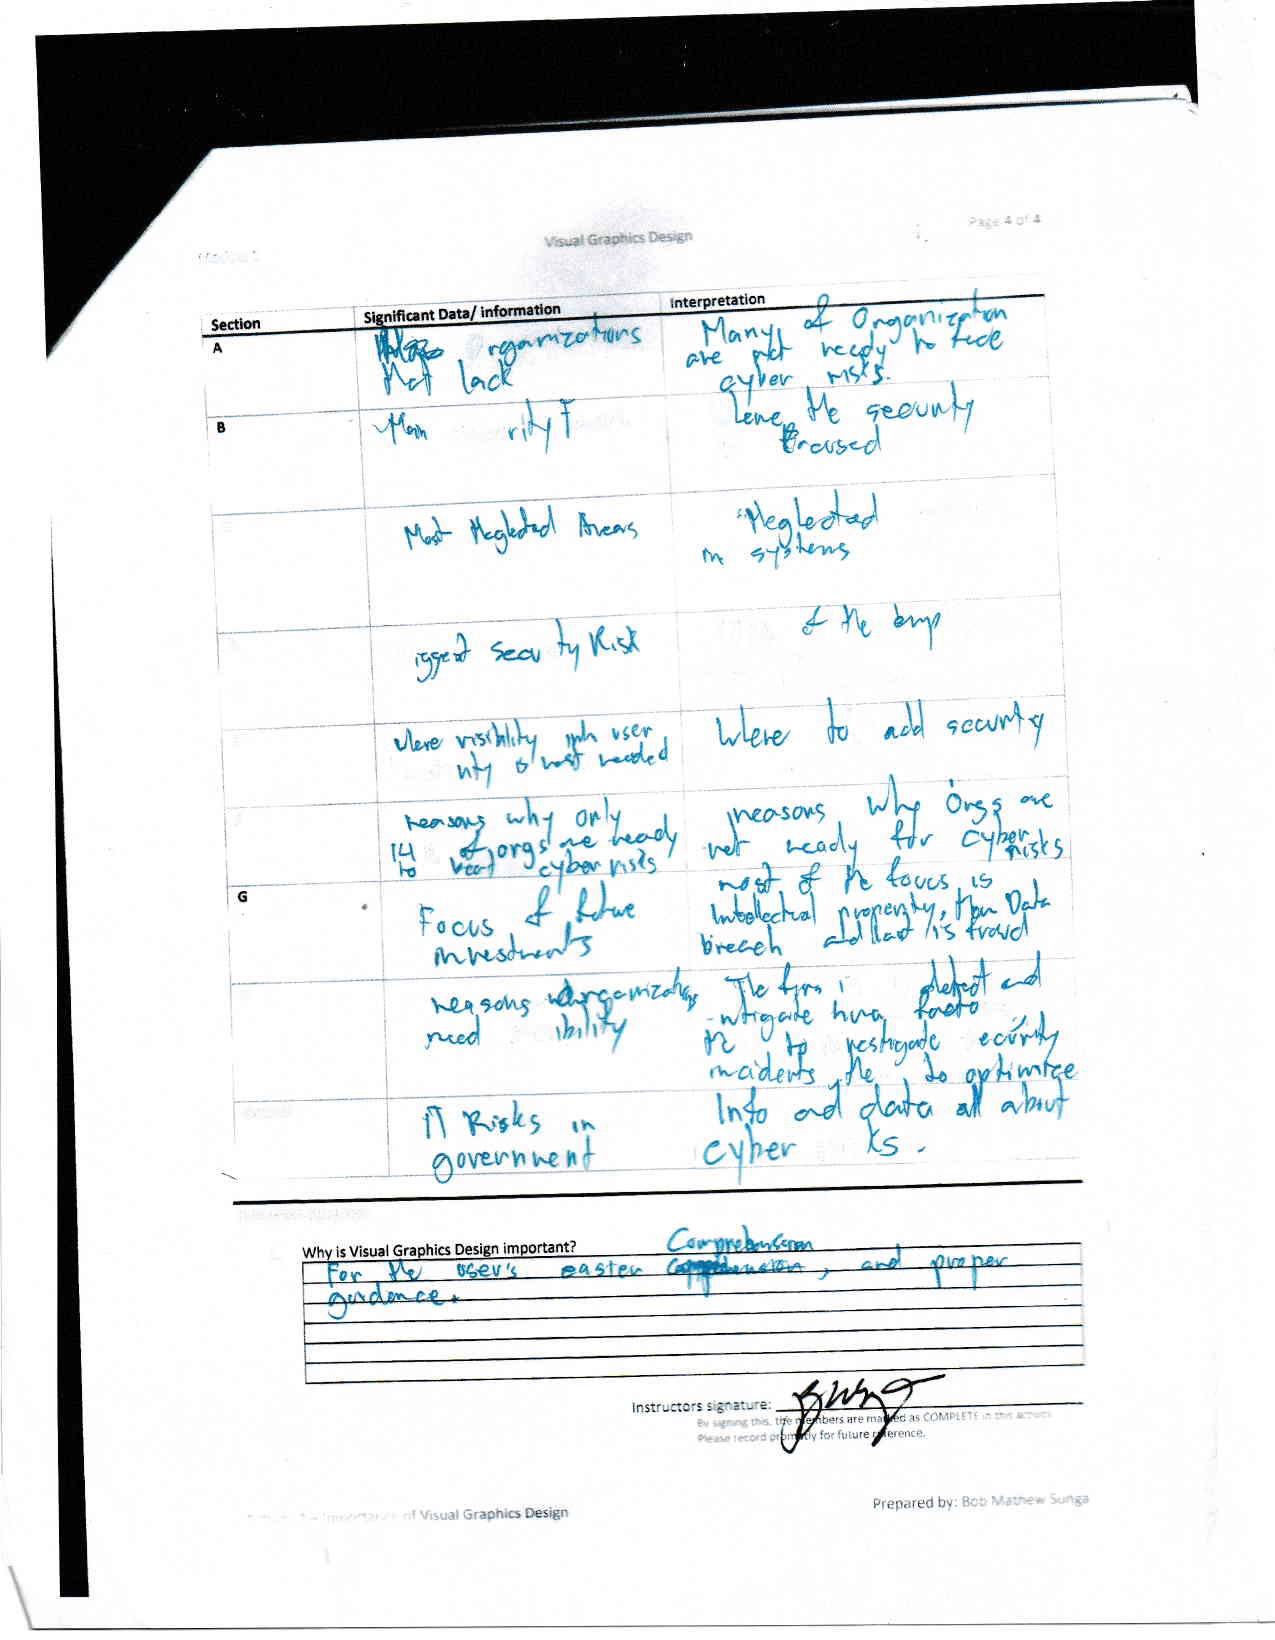 Page 4 of 4
Visual Graphics Design
Section
Significant Data/ information
Interpretation
A
rganizations
Not lack
Many of Organization
are not ready to face
cyber risks.
B
Main rity
the security
Focused
Most Neglected Areas
Neglected
in systems
iggest Secu ty Risk
of the
Where visibility user
is most needed
Where to add security
reasons why only
14 of orgs are ready
to cyber risks
reasons why Orgs are
not ready for cyber
risks
G
Focus of future
investments
most of the focus is
Intellectual property, then Data
breach and last is fraud
reasons organizations
need ibility
The firm detect and
to ecurity
incidents, the to optimize
IT Risks in
government
Info and data all about
cyber ks.
Why is Visual Graphics Design important?
Comprehension
For the user's easier , and proper
guidance.
Instructors signature:
By signing this, the members are marked as COMPLETE in this activity
Please record promptly for future reference.
of Visual Graphics Design
Prepared by: Bob Mathew Sunga